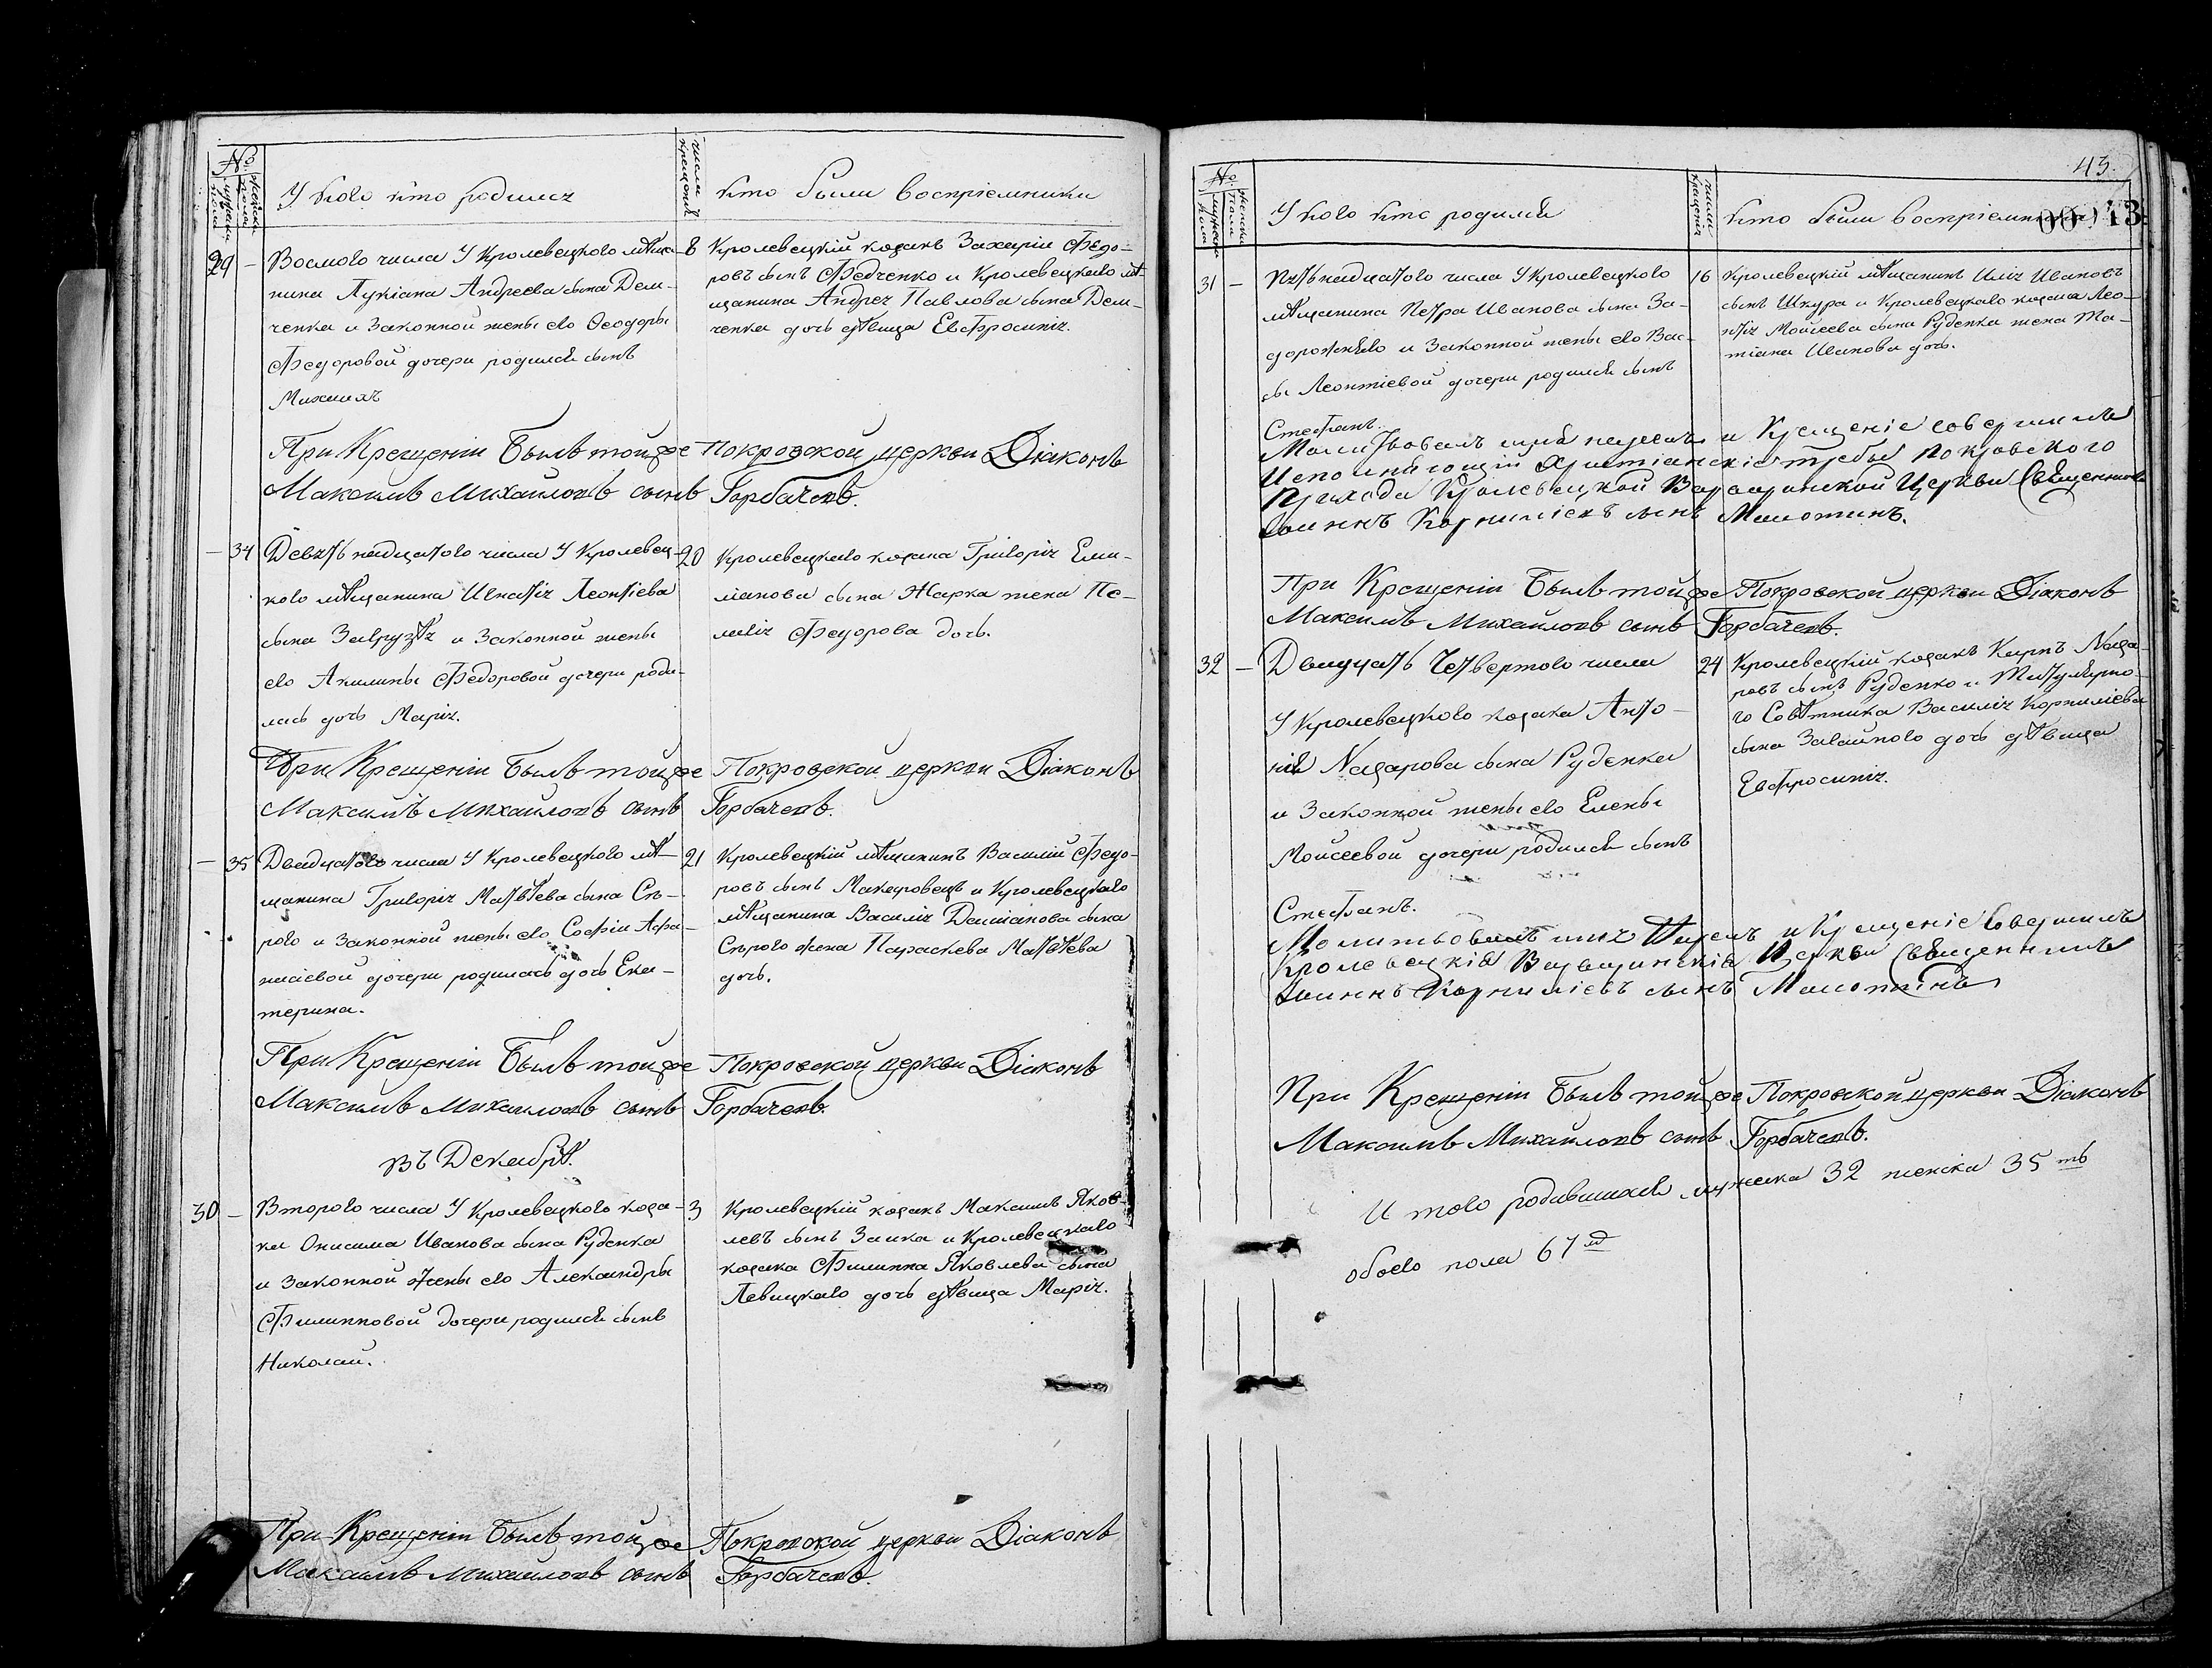 №
мужеска пола
женска пола
У кого кто родился
число крещенія
кто были воспріемники
29 – Восмого числа У Кролевецкого мѣща-
нина Лукіана Андреева сына Дем-
ченка и Законной жены его Ѳеодоры
Федоровой дочери родился сынъ
Михаилъ
8 Кролевецкій козакъ Захарій Федо-
ровъ сынъ Федченко и Кролевецкаго мѣ-
щанина Андрея Павлова сына Дем-
ченка дочь дѣвица Евфросинія.
При Крещеніи Былъ тойже Покровской церкви Діаконъ
Максимъ Михайловъ сынъ Горбачевъ.
– 34 Девятьнадцатого числа У Кролевец-
кого мѣщанина Игнатія Леонтіева
сына Загрузѣя и Законной жены
его Акилины Федоровой дочери роди-
лась дочь Марія.
20 Кролевецкаго козака Григорія Еми-
ліанова сына Жарка жена Пе-
лагія Федорова дочь.
При Крещеніи Былъ тойже Покровской церкви Діаконъ
Максимъ Михайловъ сынъ Горбачевъ.
– 35 Двадцатого числа У Кролевецкого мѣ-
щанина Григорія Матвѣева сына Сѣ-
рого и Законной жены его Софіи Афа-
насіевой дочери родилась дочь Ека-
терина.
21 Кролевецкій мѣщанинъ Василій Федо-
ровъ сынъ Макаровецъ и Кролевецкаго
мѣщанина Василія Даміанова сына
Сѣрого жена Параскева Матвѣева
дочь.
При Крещеніи Былъ тойже Покровской церкви Діаконъ
Максимъ Михайловъ сынъ Горбачевъ.
Въ Декабрѣ.
30 – Второго числа У Кролевецкого коза-
ка Онисима Иванова сына Руденка
и Законной жены его Александры
Филипповой дочери родился сынъ
Николай.
3 Кролевецкій козакъ Максимъ Яков-
левъ сынъ Заика и Кролевецкаго
козака Филиппа Яковлева сына
Левицкаго дочь дѣвица Марія.
При Крещеніи Былъ тойже Покровской церкви Діаконъ
Максимъ Михайловъ сынъ Горбачевъ.
43.
№
мужеска пола
женска пола
У кого кто родился
число крещенія
кто были воспріемники
31 – Пятьнадцатого числа У Кролевецкого
мѣщанина Петра Иванова сына За-
дорожнего и Законной жены его Вас-
сы Леонтіевой дочери родился сынъ
Стефанъ.
16 Кролевецкій мѣщанинъ Илія Ивановъ
сынъ Шкура и Кролевецкаго козака Лео-
нтія Моисеева сына Руденка жена Та-
тіана Иванова дочь.
Молитвовалъ имя нарекъ и Крещеніе совершилъ
Исполняющій Христіанскія требы Покровского
Прихода Кролевецкой Варваринской Церкви Священникъ
Іоаннъ Корниліевъ сынъ Малотинъ.
При Крещеніи Былъ тойже Покровской церкви Діаконъ
Максимъ Михайловъ сынъ Горбачевъ.
32 – Двадцать Четвертого числа
У Кролевецкого козака Анто-
нія Назарова сына Руденка
и Законной жены его Елены
Моисеевой дочери родился сынъ
Стефанъ.
24 Кролевецкій козакъ Карпъ Наза-
ровъ сынъ Руденко и Титулярно-
го Совѣтника Василія Корниліева
сына Загайного дочь дѣвица
Евфросинія.
Молитвовалъ имя Нарекъ и Крещеніе Совершилъ
Кролевецкія Варваринскія Церкви Священникъ
Іоаннъ Корниліевъ сынъ Малотинъ
При Крещеніи Былъ тойже Покровской церкви Діаконъ
Максимъ Михайловъ сынъ Горбачевъ.
И того родившихся мужеска 32 женска 35ть
обоего пола 67м